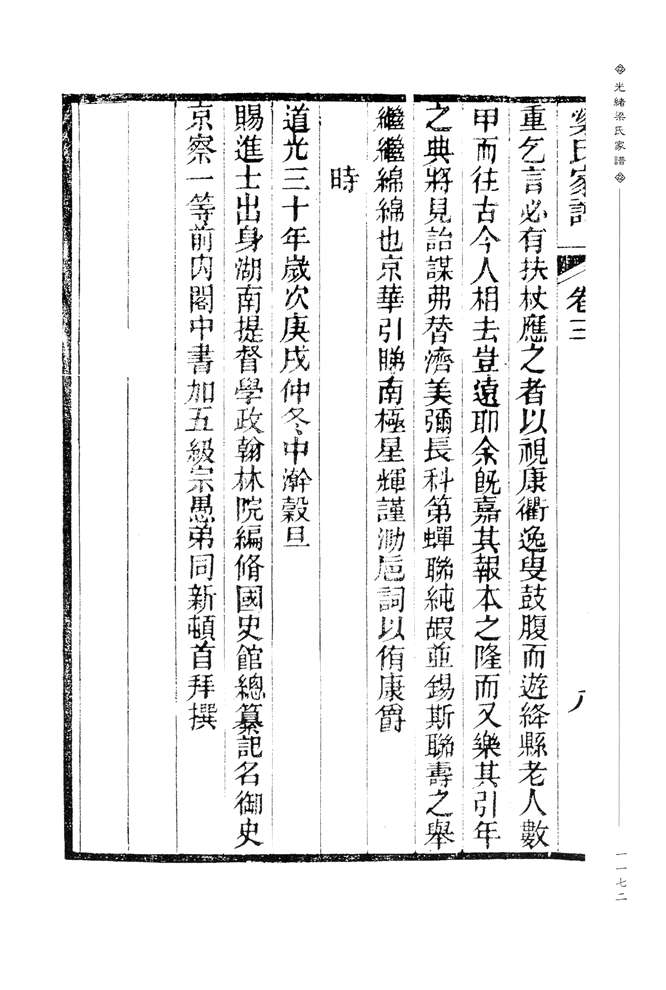 光緒梁氏家譜
一一七二
梁氏家譜 卷三 八
重乞言必有扶杖應之者以視康衢逸叟鼓腹而遊絳縣老人數
甲而往古今人相去豈遠耶余旣嘉其報本之隆而又樂其引年
之典將見詒謀弗替濟美彌長科第蟬聯純嘏並錫斯聯壽之舉
繼繼綿綿也京華引睇南極星輝謹泐巵詞以侑康爵
時
道光三十年歲次庚戌仲冬中澣穀旦
賜進士出身湖南提督學政翰林院編脩國史館總纂記名御史
京察一等前內閣中書加五級宗愚弟同新頓首拜撰